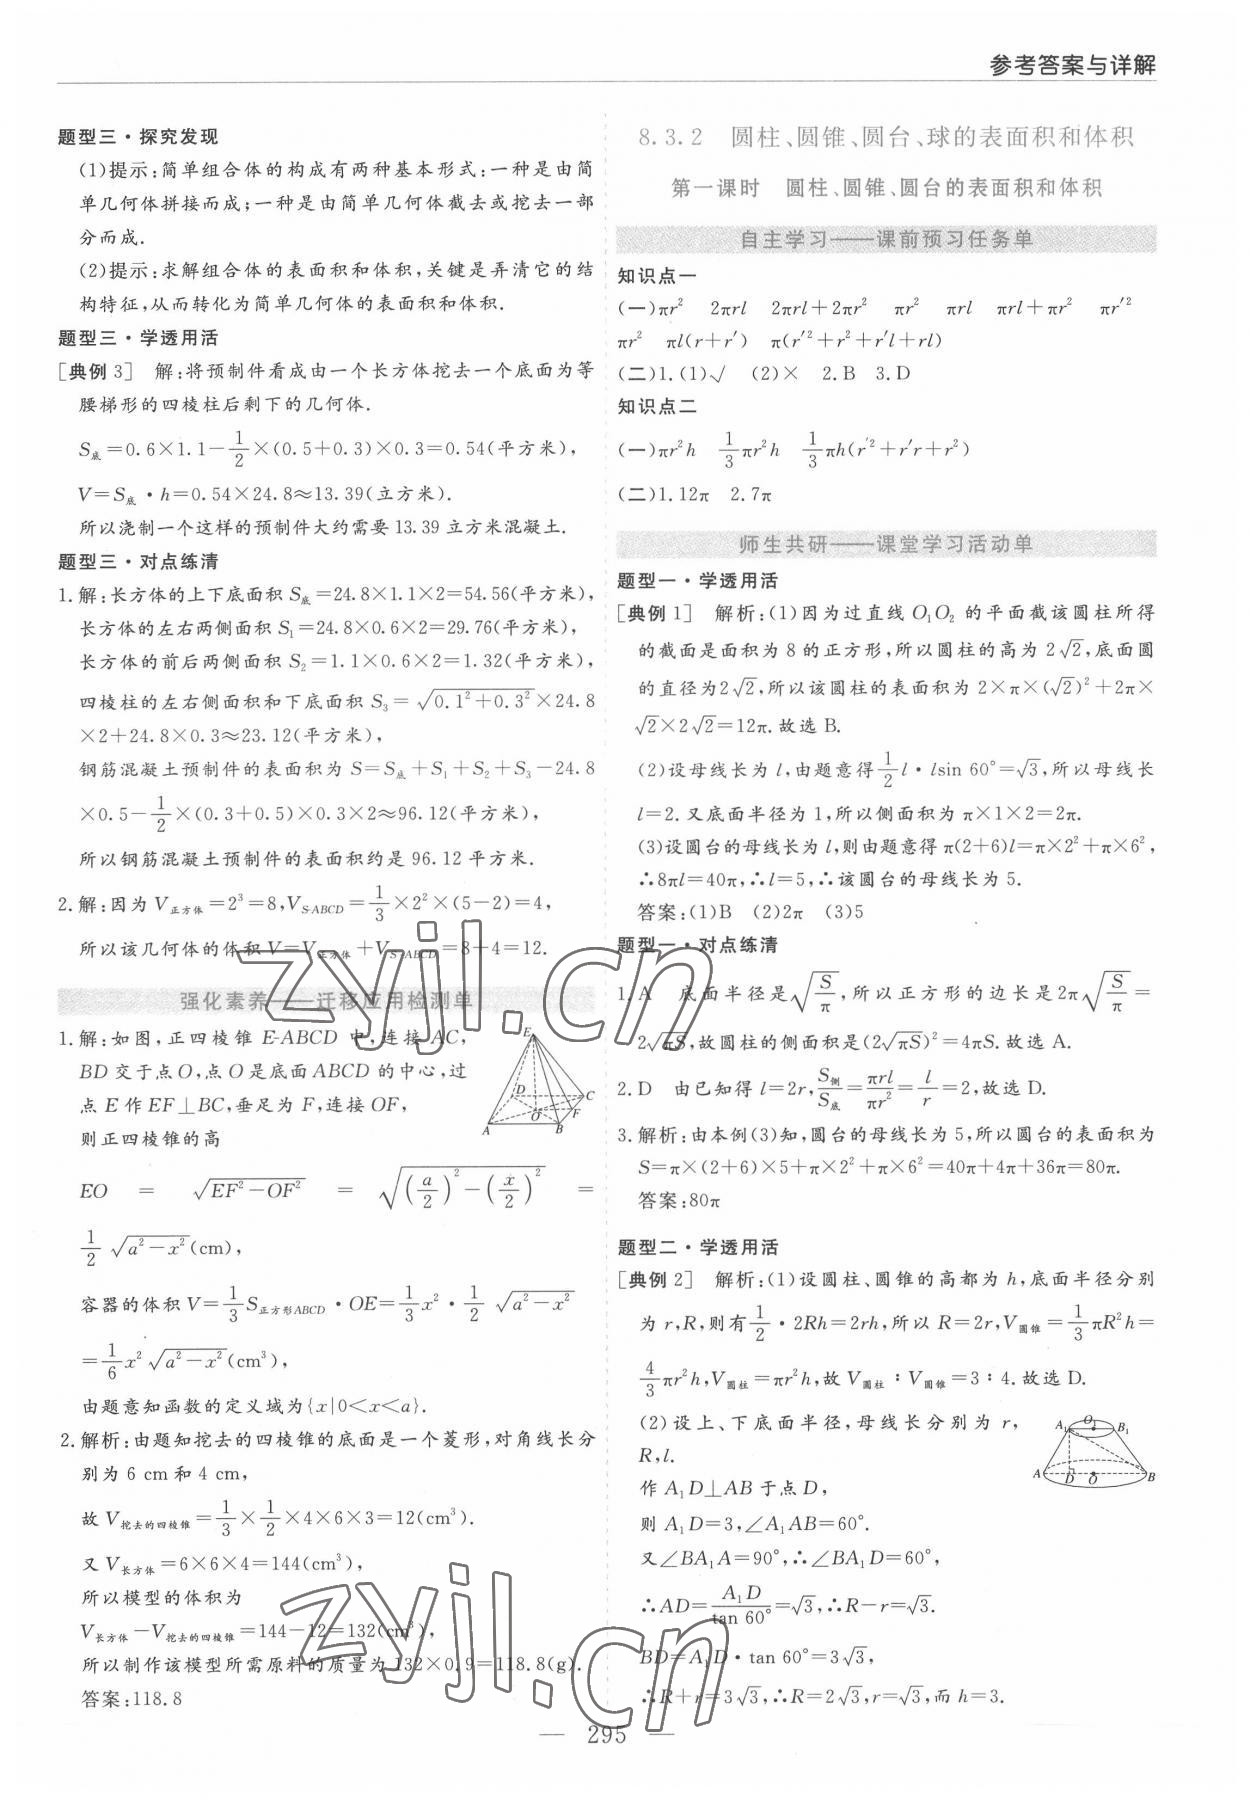 参考答案与详解
题型三·探究发现
(1)提示:简单组合体的构成有两种基本形式:一种是由简
单几何体拼接而成;一种是由简单几何体截去或挖去一部
分而成.
(2)提示:求解组合体的表面积和体积,关键是弄清它的结
构特征,从而转化为简单几何体的表面积和体积.
题型三·学透用活
[典例3] 解:将预制件看成由一个长方体挖去一个底面为等
腰梯形的四棱柱后剩下的几何体.
S底=0.6×1.1-1/2×(0.5+0.3)×0.3=0.54(平方米),
V=S底·h=0.54×24.8≈13.39(立方米).
所以浇制一个这样的预制件大约需要13.39立方米混凝土.
题型三·对点练清
1.解:长方体的上下底面积S底=24.8×1.1×2=54.56(平方米),
长方体的左右两侧面积S₁=24.8×0.6×2=29.76(平方米),
长方体的前后两侧面积S₂=1.1×0.6×2=1.32(平方米),
四棱柱的左右侧面积和下底面积S₃=√(0.1²+0.3²)×24.8
×2+24.8×0.3≈23.12(平方米),
钢筋混凝土预制件的表面积为S=S底+S₁+S₂+S₃-24.8
×0.5-1/2×(0.3+0.5)×0.3×2≈96.12(平方米),
所以钢筋混凝土预制件的表面积约是96.12平方米.
2.解:因为V正方体=2³=8,V_S-ABCD=1/3×2²×(5-2)=4,
所以该几何体的体积V=V正方体+V_S-ABCD=8+4=12.
强化素养——迁移应用检测单
1.解:如图,正四棱锥E-ABCD中,连接AC,
BD交于点O,点O是底面ABCD的中心,过
点E作EF⊥BC,垂足为F,连接OF,
则正四棱锥的高
E
D
C
O
F
A
B
EO = √(EF²-OF²) = √((a/2)²-(x/2)²) =
1/2 √(a²-x²)(cm),
容器的体积V=1/3 S正方形ABCD·OE=1/3 x²·1/2 √(a²-x²)
=1/6 x²√(a²-x²)(cm³),
由题意知函数的定义域为{x|0<x<a}.
2.解析:由题知挖去的四棱锥的底面是一个菱形,对角线长分
别为6 cm和4 cm,
故V挖去的四棱锥=1/3×1/2×4×6×3=12(cm³).
又V长方体=6×6×4=144(cm³),
所以模型的体积为
V长方体-V挖去的四棱锥=144-12=132(cm³),
所以制作该模型所需原料的质量为132×0.9=118.8(g).
答案:118.8
8.3.2 圆柱、圆锥、圆台、球的表面积和体积
第一课时 圆柱、圆锥、圆台的表面积和体积
自主学习——课前预习任务单
知识点一
(一)πr² 2πrl 2πrl+2πr² πr² πrl πrl+πr² πr′²
πr² πl(r+r′) π(r′²+r²+r′l+rl)
(二)1.(1)√ (2)× 2.B 3.D
知识点二
(一)πr²h 1/3 πr²h 1/3 πh(r′²+r′r+r²)
(二)1.12π 2.7π
师生共研——课堂学习活动单
题型一·学透用活
[典例1] 解析:(1)因为过直线O₁O₂的平面截该圆柱所得
的截面是面积为8的正方形,所以圆柱的高为2√2,底面圆
的直径为2√2,所以该圆柱的表面积为2×π×(√2)²+2π×
√2×2√2=12π.故选B.
(2)设母线长为l,由题意得1/2 l·lsin 60°=√3,所以母线长
l=2.又底面半径为1,所以侧面积为π×1×2=2π.
(3)设圆台的母线长为l,则由题意得π(2+6)l=π×2²+π×6²,
∴8πl=40π,∴l=5,∴该圆台的母线长为5.
答案:(1)B (2)2π (3)5
题型一·对点练清
1.A 底面半径是√(S/π),所以正方形的边长是2π√(S/π)=
2√(πS),故圆柱的侧面积是(2√(πS))²=4πS.故选A.
2.D 由已知得l=2r,S侧/S底=πrl/πr²=l/r=2,故选D.
3.解析:由本例(3)知,圆台的母线长为5,所以圆台的表面积为
S=π×(2+6)×5+π×2²+π×6²=40π+4π+36π=80π.
答案:80π
题型二·学透用活
[典例2] 解析:(1)设圆柱、圆锥的高都为h,底面半径分别
为r,R,则有1/2·2Rh=2rh,所以R=2r,V圆锥=1/3 πR²h=
4/3 πr²h,V圆柱=πr²h,故V圆柱∶V圆锥=3∶4.故选D.
(2)设上、下底面半径,母线长分别为r,
R,l.
作A₁D⊥AB于点D,
则A₁D=3,∠A₁AB=60°.
又∠BA₁A=90°,∴∠BA₁D=60°,
A₁
O₁
B₁
A
D
O
B
∴AD=A₁D/tan 60°=√3,∴R-r=√3.
BD=A₁D·tan 60°=3√3,
∴R+r=3√3,∴R=2√3,r=√3,而h=3.
— 295 —
zyjl.cn
zyjl.cn